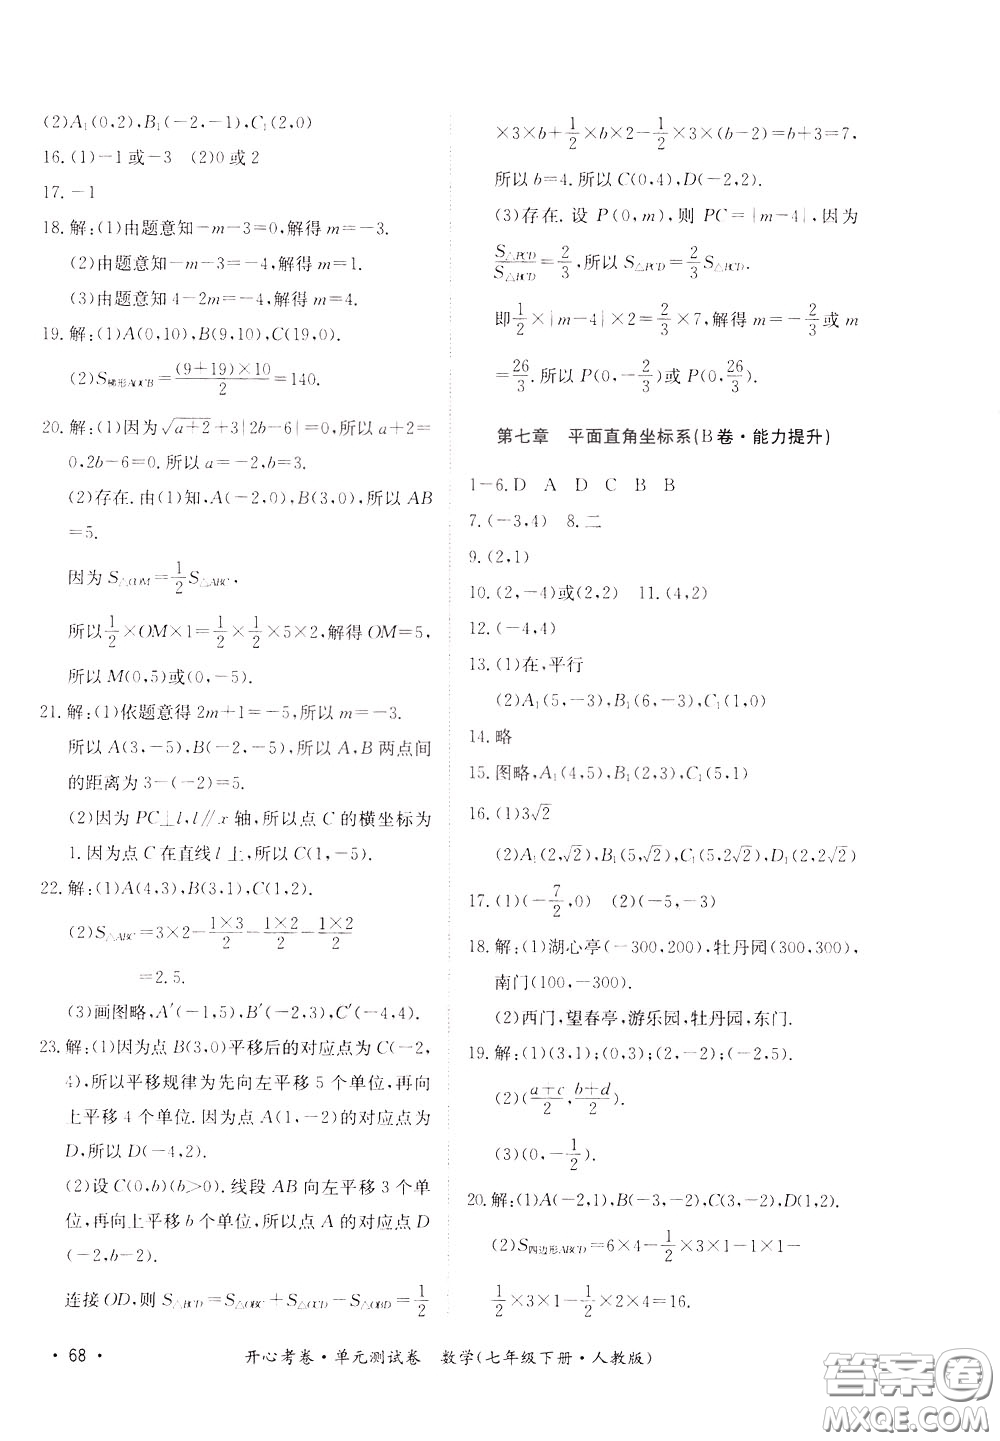 (2)A₁(0,2),B₁(-2,-1),C₁(2,0)
16.(1)-1或-3 (2)0或2
17.-1
18.解:(1)由题意知-m-3=0,解得m=-3.
(2)由题意知-m-3=-4,解得m=1.
(3)由题意知4-2m=-4,解得m=4.
19.解:(1)A(0,10),B(9,10),C(19,0).
(2)S梯形AOCB=(9+19)×10/2=140.
20.解:(1)因为√(a+2)+3|2b-6|=0,所以a+2=
0,2b-6=0.所以a=-2,b=3.
(2)存在.由(1)知,A(-2,0),B(3,0),所以AB
=5.
因为S△COM=1/2S△ABC,
所以1/2×OM×1=1/2×1/2×5×2,解得OM=5,
所以M(0,5)或(0,-5).
21.解:(1)依题意得2m+1=-5,所以m=-3.
所以A(3,-5),B(-2,-5),所以A,B两点间
的距离为3-(-2)=5.
(2)因为PC⊥l,l∥x轴,所以点C的横坐标为
1.因为点C在直线l上,所以C(1,-5).
22.解:(1)A(4,3),B(3,1),C(1,2).
(2)S△ABC=3×2-1×3/2-1×2/2-1×2/2
=2.5.
(3)画图略,A′(-1,5),B′(-2,3),C′(-4,4).
23.解:(1)因为点B(3,0)平移后的对应点为C(-2,
4),所以平移规律为先向左平移5个单位,再向
上平移4个单位.因为点A(1,-2)的对应点为
D,所以D(-4,2).
(2)设C(0,b)(b>0).线段AB向左平移3个单
位,再向上平移b个单位,所以点A的对应点D
(-2,b-2).
连接OD,则S△BCD=S△OBC+S△OCD-S△OBD=1/2
×3×b+1/2×b×2-1/2×3×(b-2)=b+3=7,
所以b=4.所以C(0,4),D(-2,2).
(3)存在.设P(0,m),则PC=|m-4|,因为
S△PCD/S△BCD=2/3,所以S△PCD=2/3S△BCD.
即1/2×|m-4|×2=2/3×7,解得m=-2/3或m
=26/3.所以P(0,-2/3)或P(0,26/3).
第七章 平面直角坐标系(B卷·能力提升)
1-6.D A D C B B
7.(-3,4) 8.二
9.(2,1)
10.(2,-4)或(2,2) 11.(4,2)
12.(-4,4)
13.(1)在,平行
(2)A₁(5,-3),B₁(6,-3),C₁(1,0)
14.略
15.图略,A₁(4,5),B₁(2,3),C₁(5,1)
16.(1)3√2
(2)A₁(2,√2),B₁(5,√2),C₁(5,2√2),D₁(2,2√2)
17.(1)(-7/2,0) (2)(-5,-3)
18.解:(1)湖心亭(-300,200),牡丹园(300,300),
南门(100,-300).
(2)西门,望春亭,游乐园,牡丹园,东门.
19.解:(1)(3,1);(0,3);(2,-2).
(2)(a+c/2,b+d/2).
(3)(0,-1/2).
20.解:(1)A(-2,1),B(-3,-2),C(3,-2),D(1,2).
(2)S四边形ABCD=6×4-1/2×3×1-1×1-
1/2×3×1-1/2×2×4=16.
·68· 开心考卷·单元测试卷 数学(七年级下册·人教版)
答案卷
MXQE.COM